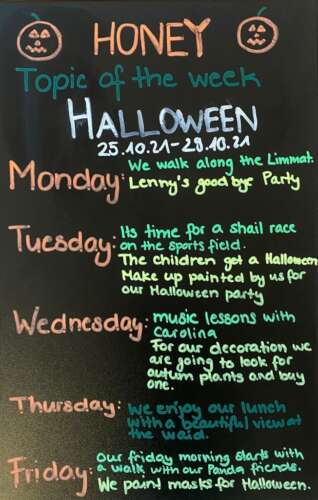 HONEY
Topic of the week
HALLOWEEN
25.10.21-29.10.21
Monday: We walk along the Limmat.
Lenny's good bye Party
Tuesday: Its time for a snail race
on the sports field.
The children get a Halloween
Make up painted by us for
our Halloween party
Wednesday: music lessons with
Carolina
For our decoration we
are going to look for
autum plants and buy
one.
Thursday: We enjoy our lunch
with a beautiful view at
the waid.
Friday: Our friday morning starts with
a walk with our Panda friends.
We paint masks for Halloween.